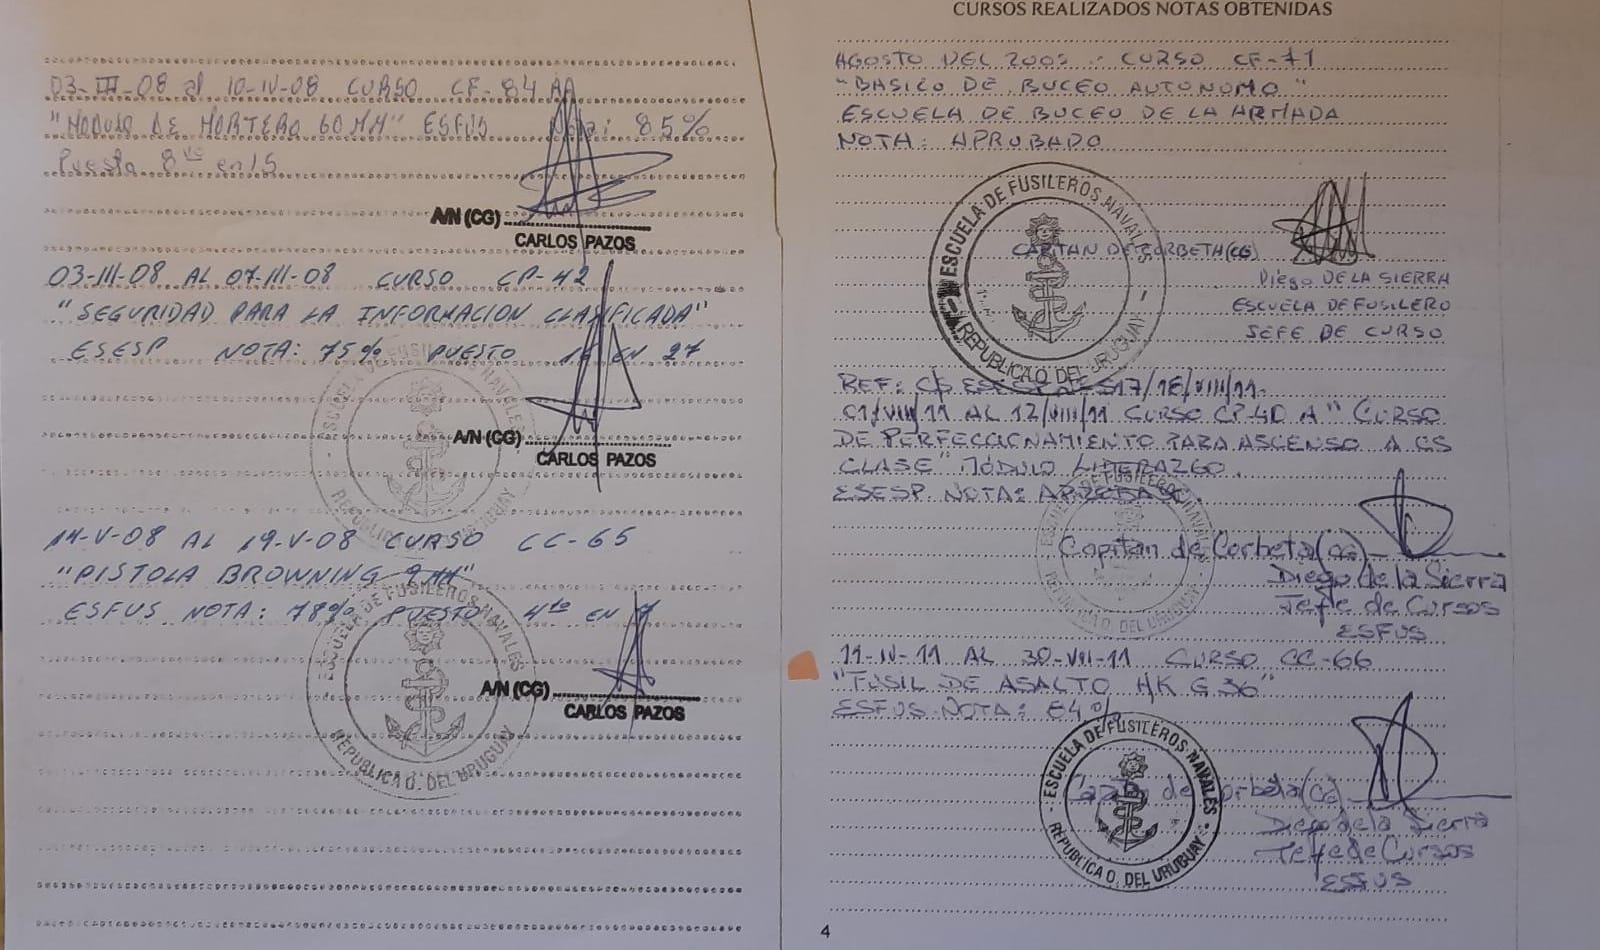 03-III-08 al 10-IV-08 CURSO CF-84 AA
"MODULO DE MORTERO 60 MM" ESFUS Nota: 85%
Puesto 8vo en 15
A/N (CG)
CARLOS PAZOS
03-III-08 AL 07-III-08 CURSO CP-42
"SEGURIDAD PARA LA INFORMACION CLASIFICADA"
ESESP NOTA: 75% PUESTO 16 EN 27
A/N (CG)
CARLOS PAZOS
ESCUELA DE FUSILEROS NAVALES
REPUBLICA O. DEL URUGUAY
14-V-08 AL 19-V-08 CURSO CC-65
"PISTOLA BROWNING 9MM"
ESFUS NOTA: 78% PUESTO 4to EN
A/N (CG)
CARLOS PAZOS
ESCUELA DE FUSILEROS NAVALES
REPUBLICA O. DEL URUGUAY
CURSOS REALIZADOS NOTAS OBTENIDAS
AGOSTO DEL 2009 CURSO CF-71
"BASICO DE BUCEO AUTONOMO"
ESCUELA DE BUCEO DE LA ARMADA
NOTA: APROBADO
ESCUELA DE FUSILEROS NAVALES
REPUBLICA O. DEL URUGUAY
CAPITAN DE CORBETA (CG)
Diego DE LA SIERRA
ESCUELA DE FUSILERO
JEFE DE CURSO
REF: 517/16/VIII/11.
01/VIII/11 AL 12/VIII/11 CURSO CP-4D A "CURSO
DE PERFECCIONAMIENTO PARA ASCENSO A CS
CLASE" MÓDULO LIDERAZGO.
ESESP NOTA: APROBADO.
ESCUELA DE FUSILEROS NAVALES
REPUBLICA O. DEL URUGUAY
Capitan de Corbeta (CG)
Diego de la Sierra
Jefe de Cursos
ESFUS
11-IV-11 AL 30-VII-11 CURSO CC-66
"FUSIL DE ASALTO HK G36"
ESFUS NOTA: 84%
ESCUELA DE FUSILEROS NAVALES
REPUBLICA O. DEL URUGUAY
Capitan de Corbeta (CG)
Diego de la Sierra
Jefe de Cursos
ESFUS
4